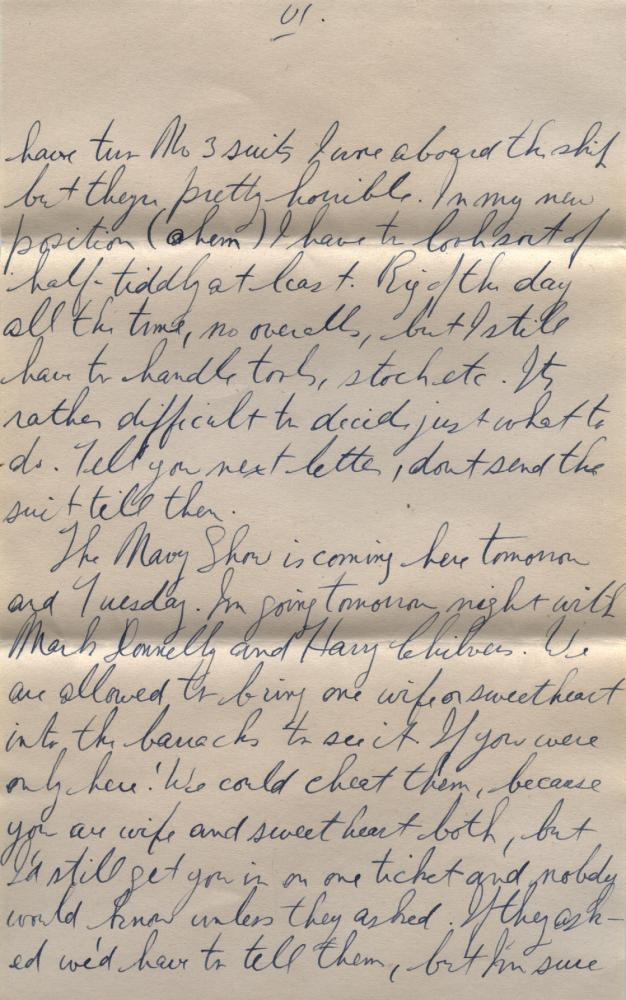 VI.
have two No 3 suits I wore aboard the ship
but theyre pretty horrible. In my new
position (ahem) I have to look sort of
half-tiddly at least. Rig of the day
all the time, no overalls, but I still
have to handle tools, stock etc. Its
rather difficult to decide just what to
do. Tell you next letter, dont send the
suit till then.
The Navy Show is coming here tomorrow
and Tuesday. Im going tomorrow night with
Mark Donnelly and Harry Chilvers. We
are allowed to bring one wife or sweetheart
into the barracks to see it. If you were
only here! We could cheat them, because
you are wife and sweetheart both, but
I'd still get you in on one ticket and nobody
would know unless they asked. If they ask-
ed we'd have to tell them, but Im sure